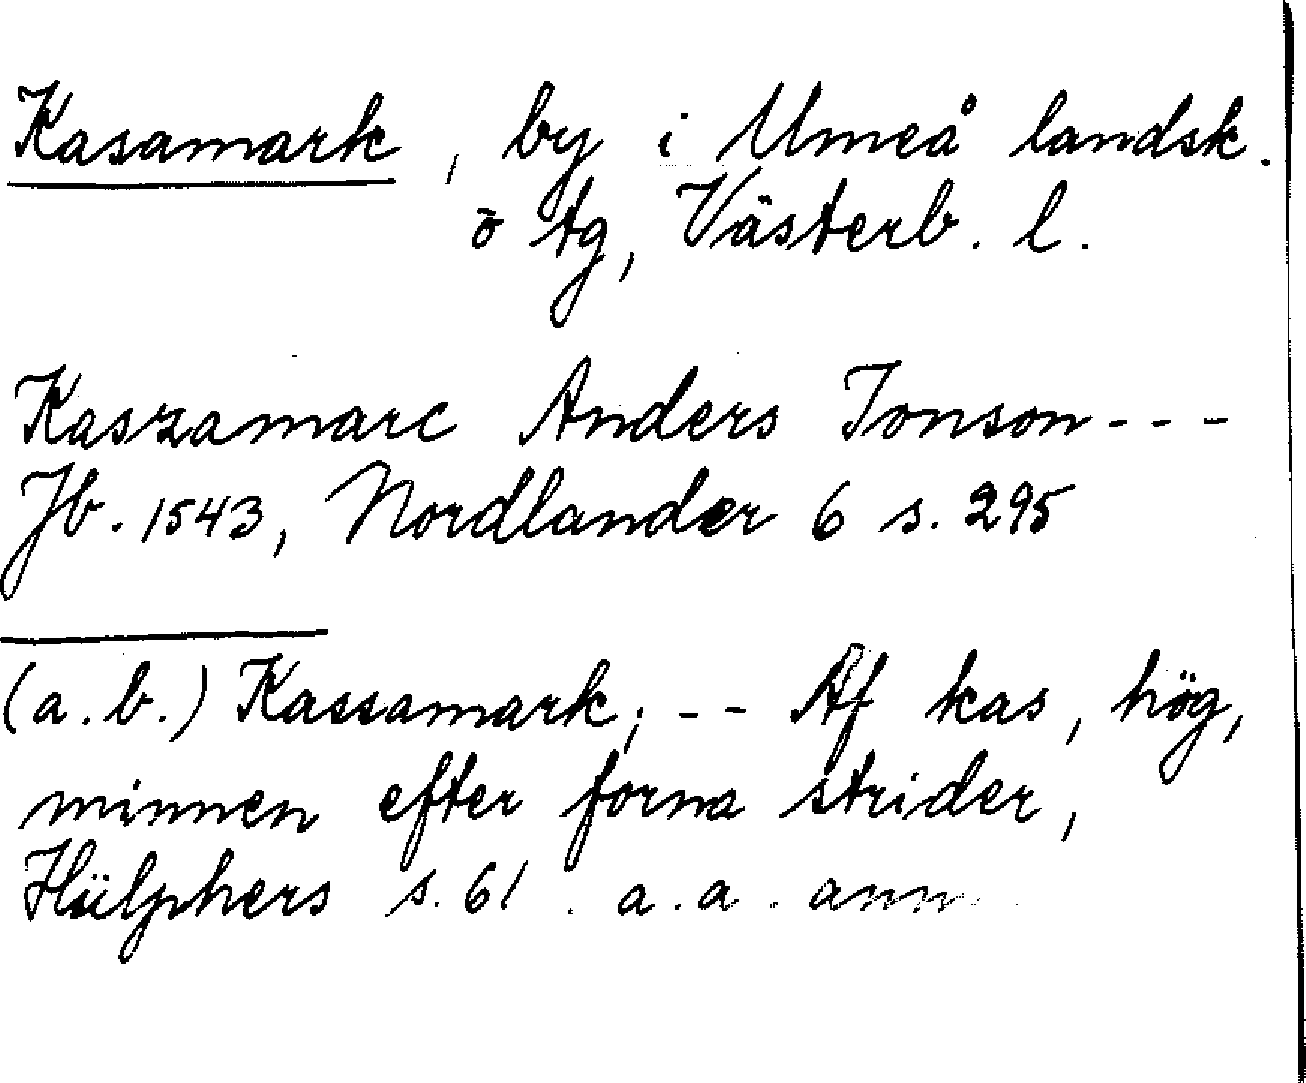 Kasamark, by i Umeå landsk.
ō tg, Västerb. l.
Kaszamarc Anders Jonson---
Jb. 1543, Nordlander 6 s. 295
(a.b.) Kassamark; -- Af kas, hög,
minnen efter forna strider,
Hülphers s. 61. a.a. anm.